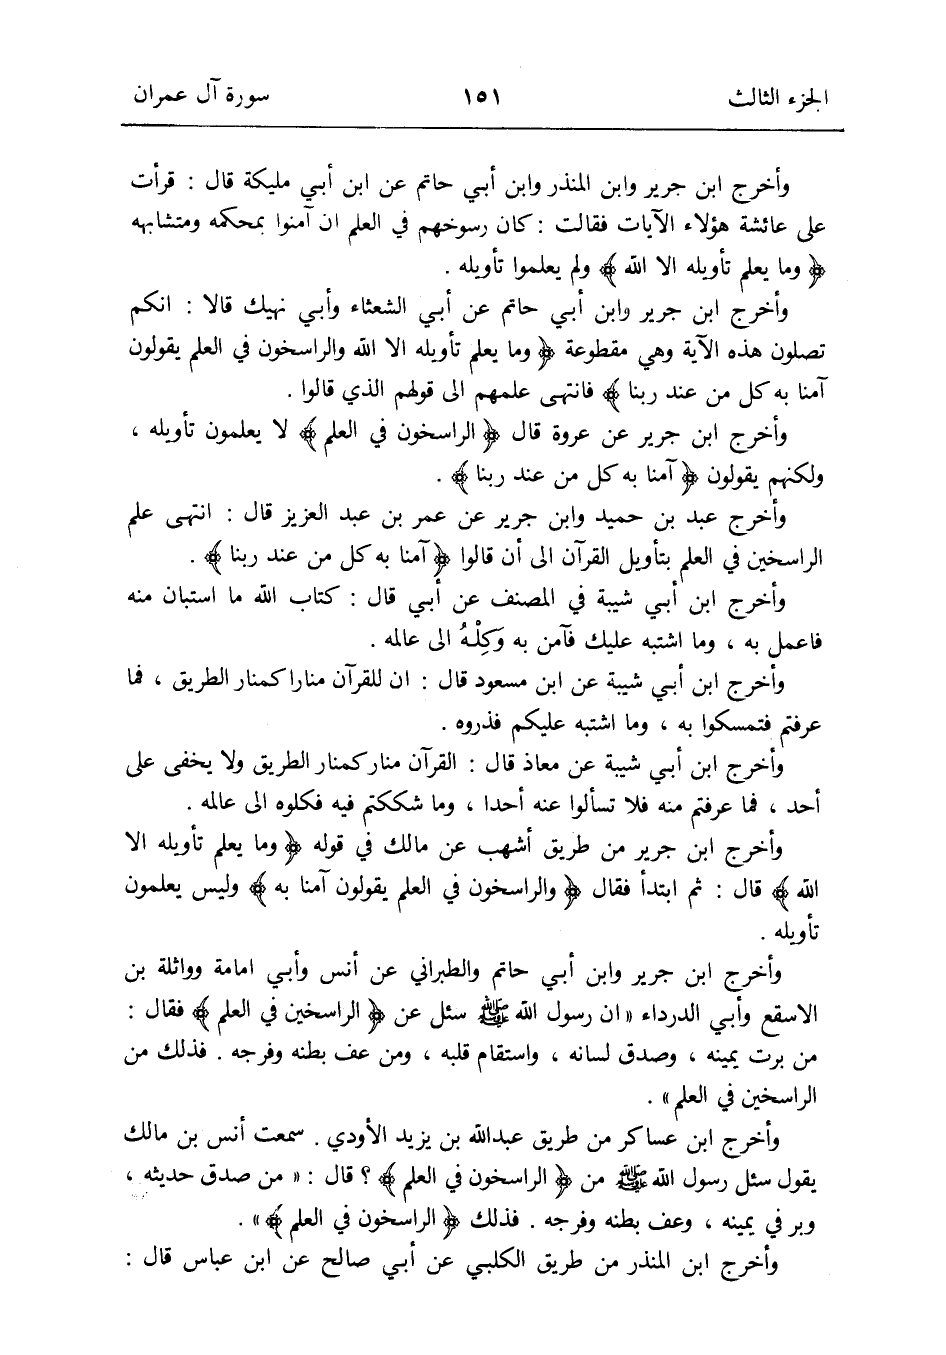 الجزء الثالث ١٥١ سورة آل عمران
وأخرج ابن جرير وابن المنذر وابن أبي حاتم عن ابن أبي مليكة قال : قرأت
على عائشة هؤلاء الآيات فقالت : كان رسوخهم في العلم ان آمنوا بمحكمه ومتشابهه
﴿ وما يعلم تأويله الا الله ﴾ ولم يعلموا تأويله .
وأخرج ابن جرير وابن أبي حاتم عن أبي الشعثاء وأبي نهيك قالا : انكم
تصلون هذه الآية وهي مقطوعة ﴿ وما يعلم تأويله الا الله والراسخون في العلم يقولون
آمنا به كل من عند ربنا ﴾ فانتهى علمهم الى قولهم الذي قالوا .
وأخرج ابن جرير عن عروة قال ﴿ الراسخون في العلم ﴾ لا يعلمون تأويله ،
ولكنهم يقولون ﴿ آمنا به كل من عند ربنا ﴾ .
وأخرج عبد بن حميد وابن جرير عن عمر بن عبد العزيز قال : انتهى علم
الراسخين في العلم بتأويل القرآن الى أن قالوا ﴿ آمنا به كل من عند ربنا ﴾ .
وأخرج ابن أبي شيبة في المصنف عن أبي قال : كتاب الله ما استبان منه
فاعمل به ، وما اشتبه عليك فآمن به وَكِلْهُ الى عالمه .
وأخرج ابن أبي شيبة عن ابن مسعود قال : ان للقرآن منارا كمنار الطريق ، فما
عرفتم فتمسكوا به ، وما اشتبه عليكم فذروه .
وأخرج ابن أبي شيبة عن معاذ قال : القرآن منار كمنار الطريق ولا يخفى على
أحد ، فما عرفتم منه فلا تسألوا عنه أحدا ، وما شككتم فيه فكلوه الى عالمه .
وأخرج ابن جرير من طريق أشهب عن مالك في قوله ﴿ وما يعلم تأويله الا
الله ﴾ قال : ثم ابتدأ فقال ﴿ والراسخون في العلم يقولون آمنا به ﴾ وليس يعلمون
تأويله .
وأخرج ابن جرير وابن أبي حاتم والطبراني عن أنس وأبي امامة وواثلة بن
الاسقع وأبي الدرداء « ان رسول الله ﷺ سئل عن ﴿ الراسخين في العلم ﴾ فقال :
من برت يمينه ، وصدق لسانه ، واستقام قلبه ، ومن عف بطنه وفرجه . فذلك من
الراسخين في العلم » .
وأخرج ابن عساكر من طريق عبدالله بن يزيد الأودي . سمعت أنس بن مالك
يقول سئل رسول الله ﷺ من ﴿ الراسخون في العلم ﴾ ؟ قال : « من صدق حديثه ،
وبر في يمينه ، وعف بطنه وفرجه . فذلك ﴿ الراسخون في العلم ﴾ » .
وأخرج ابن المنذر من طريق الكلبي عن أبي صالح عن ابن عباس قال :